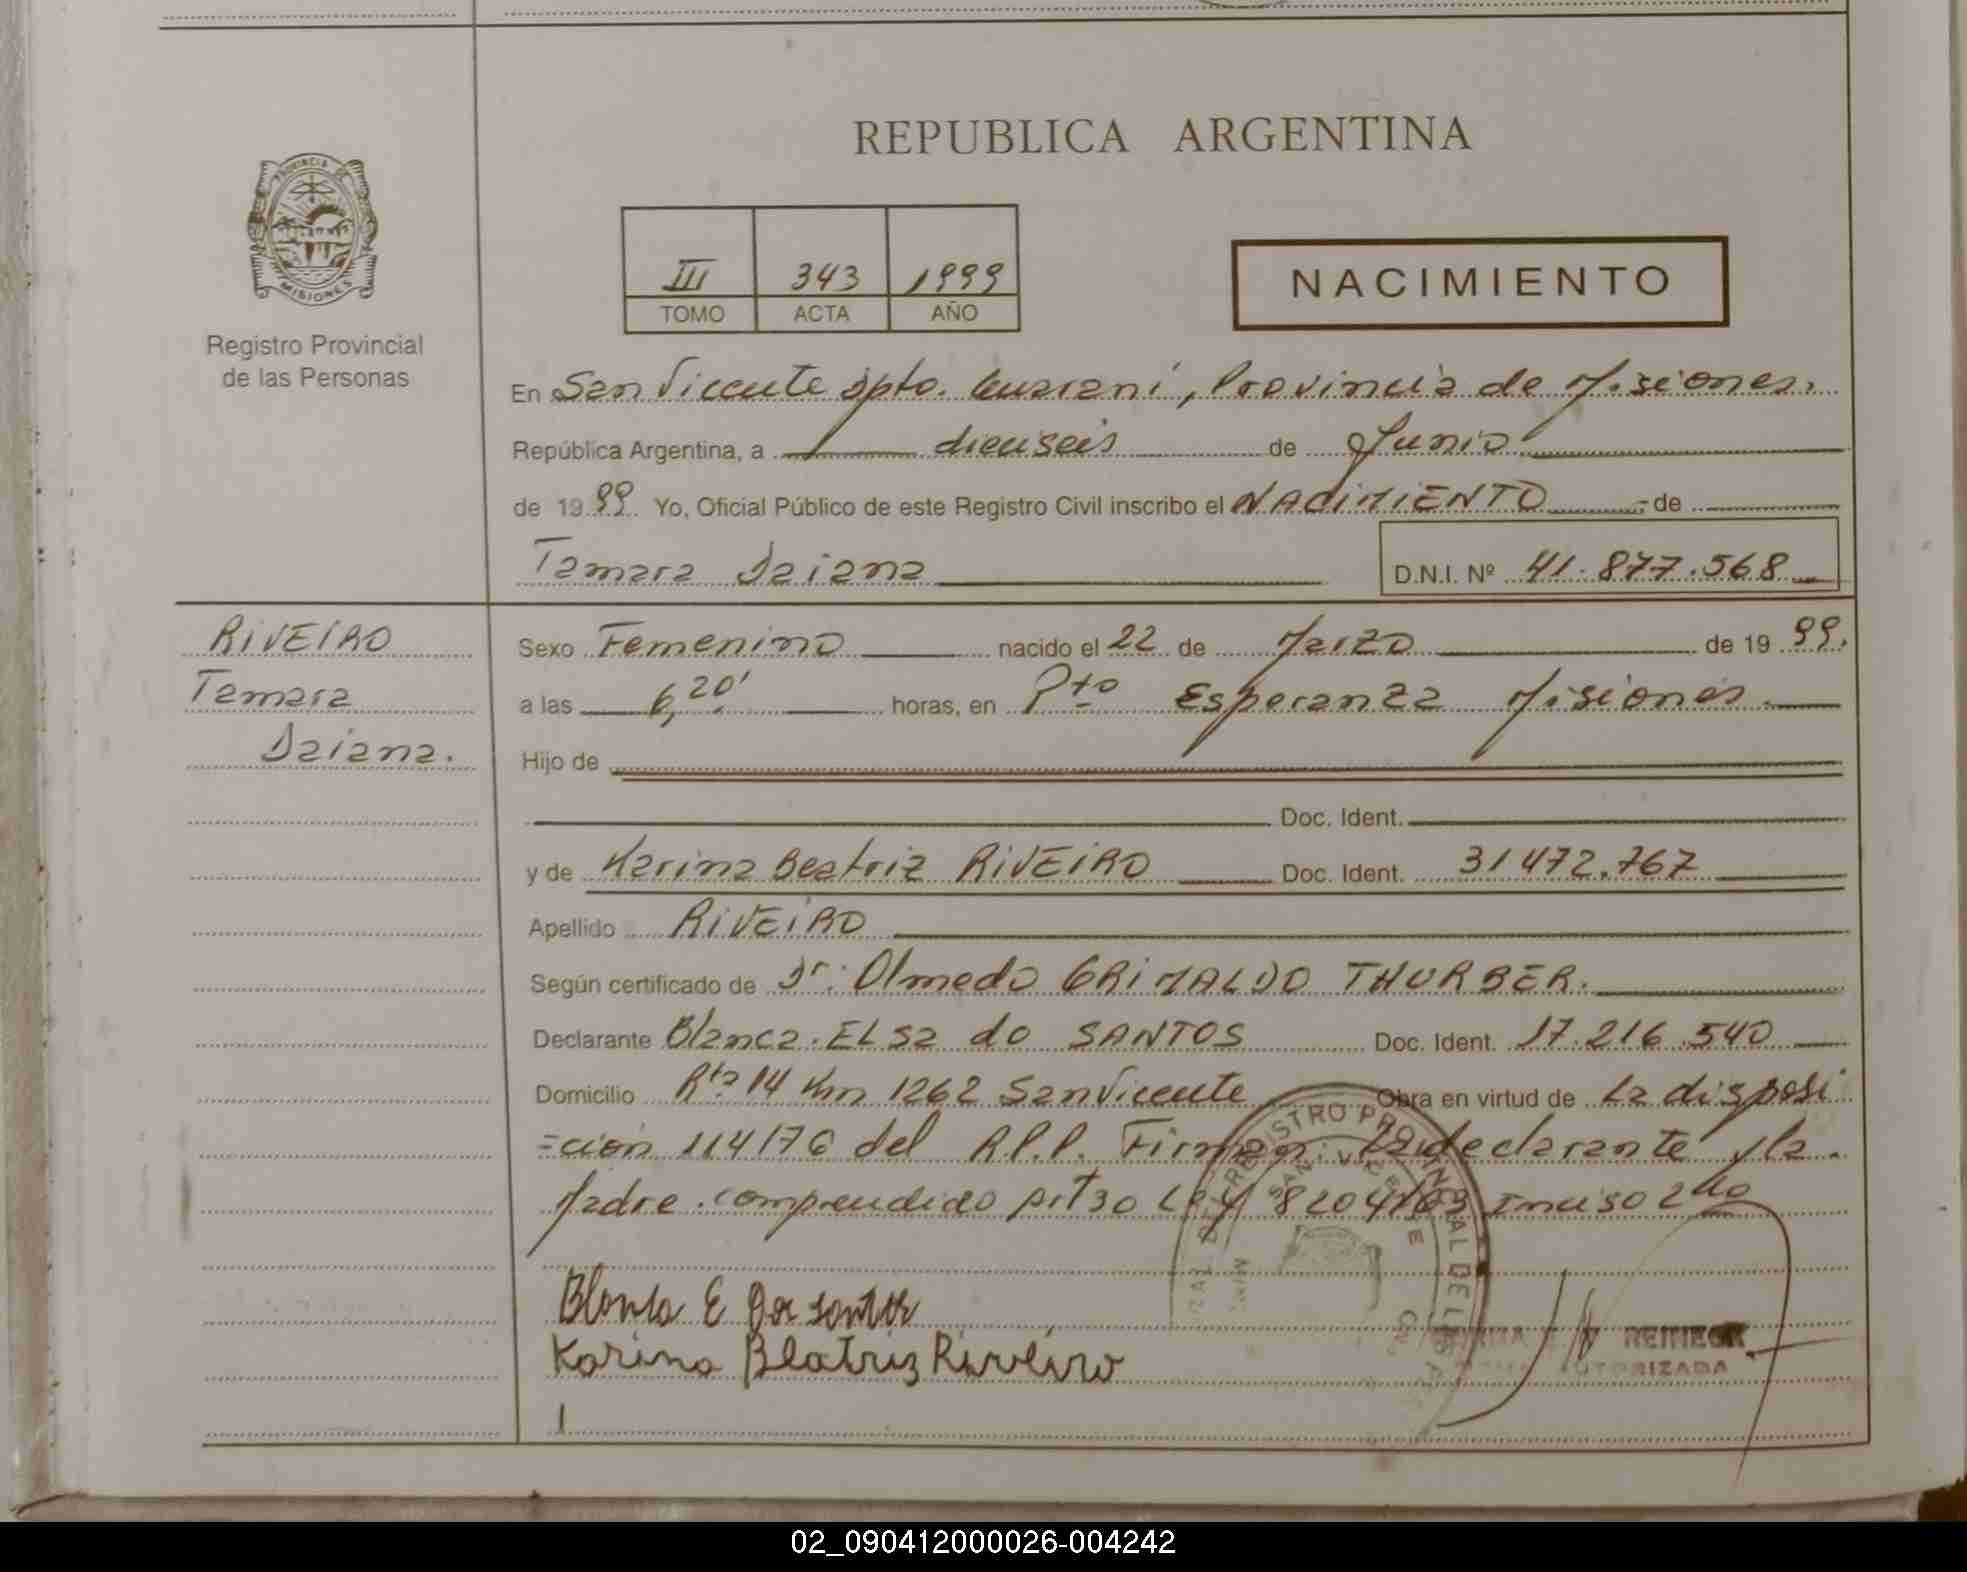 REPUBLICA ARGENTINA
PROVINCIA DE
MISIONES
Registro Provincial
de las Personas
III 343 1999
TOMO ACTA AÑO
NACIMIENTO
En San Vicente Dpto. Guarani, Provincia de Misiones.
República Argentina, a dieciseis de Junio
de 1999 Yo, Oficial Público de este Registro Civil inscribo el NACIMIENTO de
Tamara Daiana D.N.I. Nº 41.877.568
RIVEIRO
Tamara
Daiana.
Sexo Femenino nacido el 22 de Marzo de 1999.
a las 6,20' horas, en Pto Esperanza Misiones.
Hijo de
Doc. Ident.
y de Karina Beatriz RIVEIRO Doc. Ident. 31472.767
Apellido RIVEIRO
Según certificado de Dr. Olmedo GRIMALDO THURBER.
Declarante Blanca. ELSa do SANTOS Doc. Ident. 17.216.540
Domicilio Rta 14 Km 1262 San Vicente Obra en virtud de La disposi
=ción 114/76 del R.P.P. Firman: La declarante y la
Madre. comprendido Art 30 Ley 8204/63 Inciso 2do
Blanca E Dos santos
Karina Beatriz Riveiro
REGISTRO PROVINCIAL DE LAS
SAN VICENTE
REINECK
AUTORIZADA
02_090412000026-004242